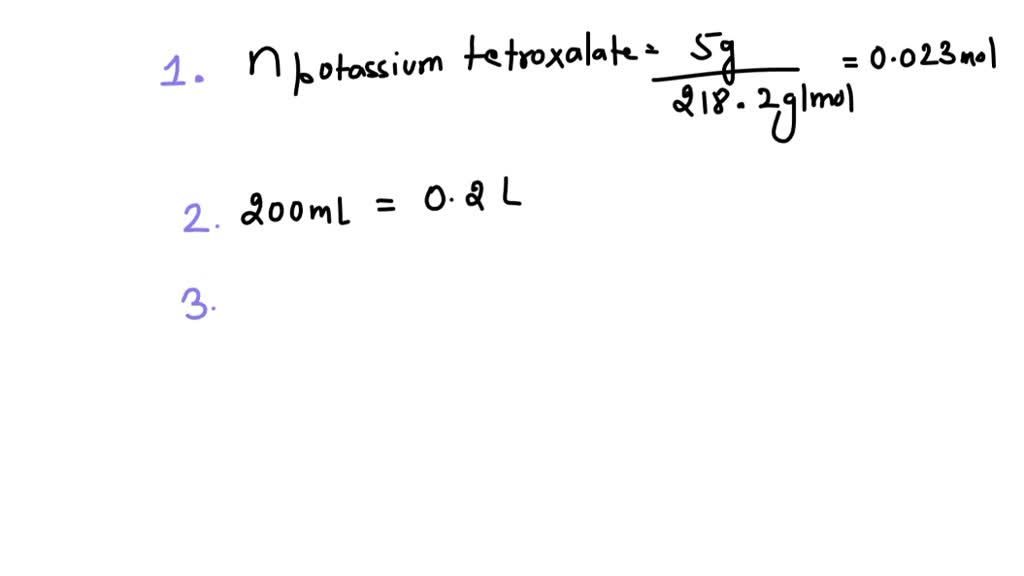 1. n potassium tetroxalate = 5g / 218.2g/mol = 0.023 mol
2. 200mL = 0.2 L
3.